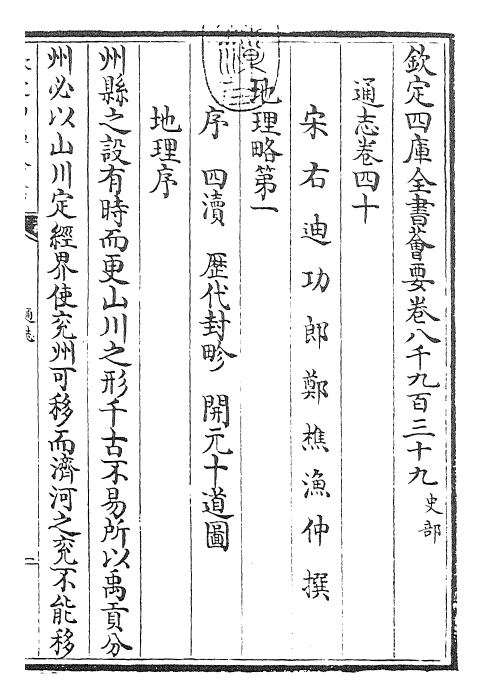 欽定四庫全書薈要卷八千九百三十九 史部
通志卷四十
宋右迪功郎鄭樵漁仲撰
地理略第一
序 四瀆 歷代封畛 開元十道圖
地理序
州縣之設有時而更山川之形千古不易所以禹貢分
州必以山川定經界使兖州可移而濟河之兖不能移
通志